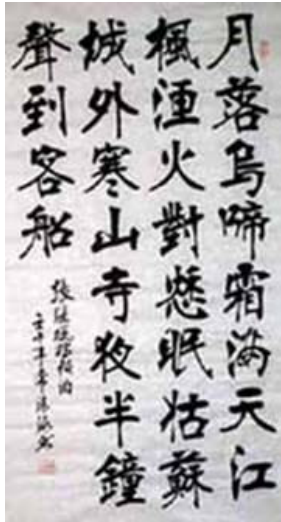 月落烏啼霜滿天江
楓漁火對愁眠姑蘇
城外寒山寺夜半鐘
聲到客船
張繼楓橋夜泊
壬午年春